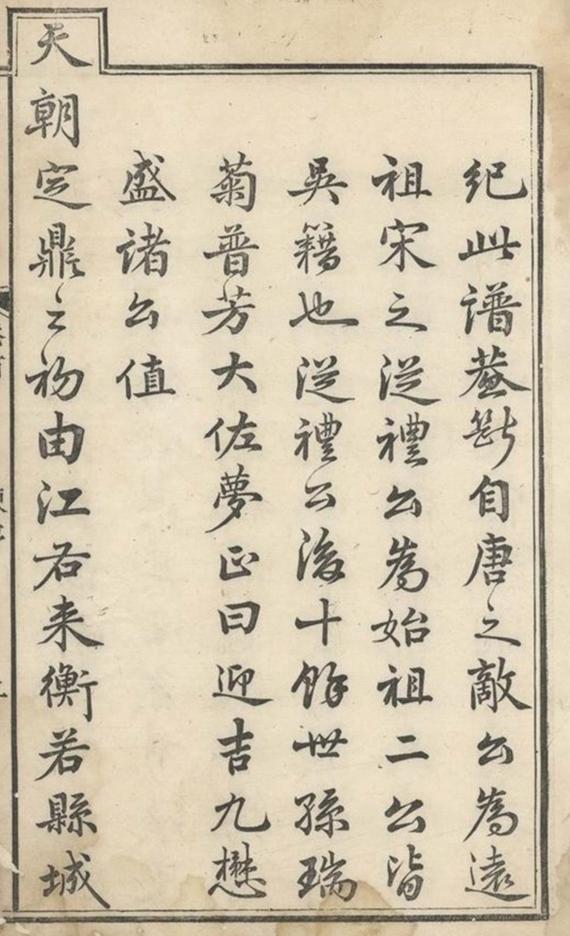 紀此譜並斷自唐之敵公為遠
祖宋之從禮公為始祖二公皆
吳籍也從禮公後十餘世孫瑞
菊普芳大佐夢正曰迎吉九懋
盛諸公值
天朝定鼎之初由江右来衡若縣城